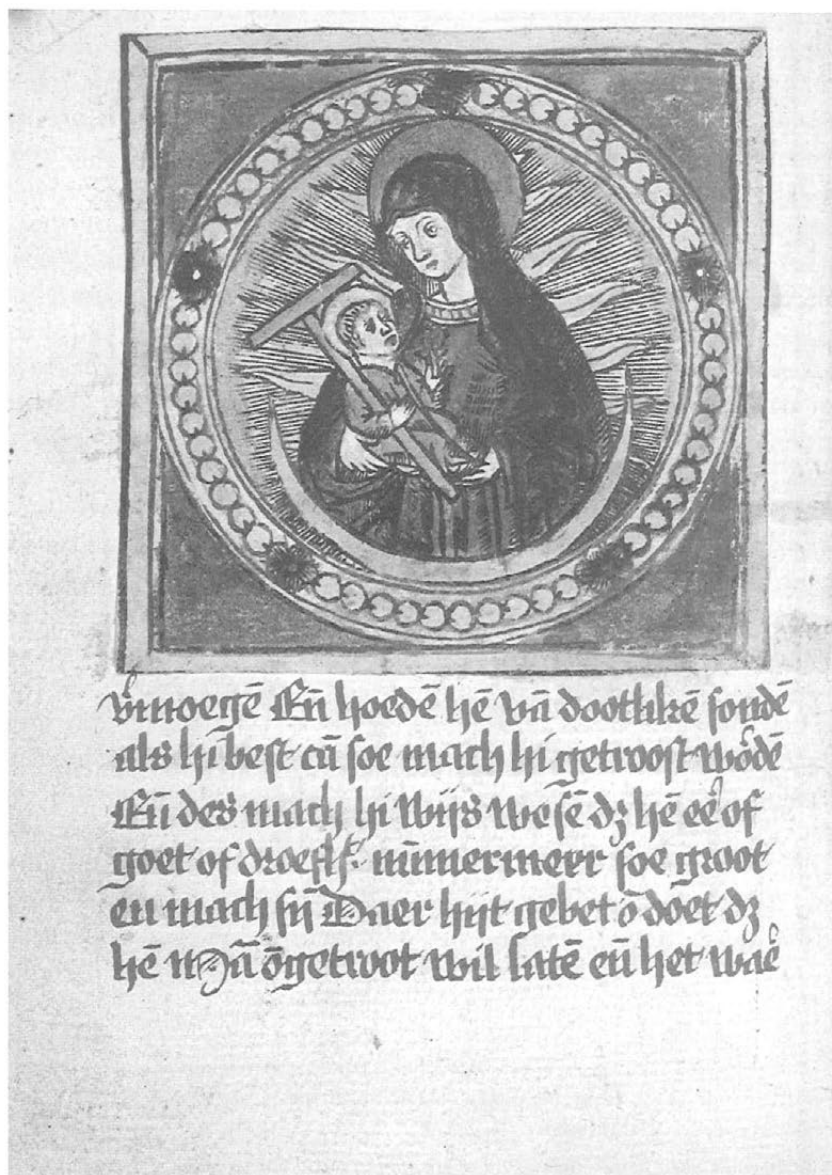 v̾moegē Eñ hoedē hē vā dootlikē sondē
als hi best cā soe mach hi getroost wo̾dē
Eñ des mach hi wijs wesē dʒ hē ee̾ of
goet of droef nūmermeer soe groot
en mach sij̄ Daer hijt gebet ō doet dʒ
hē ōgetroot wil latē eñ het wae̾